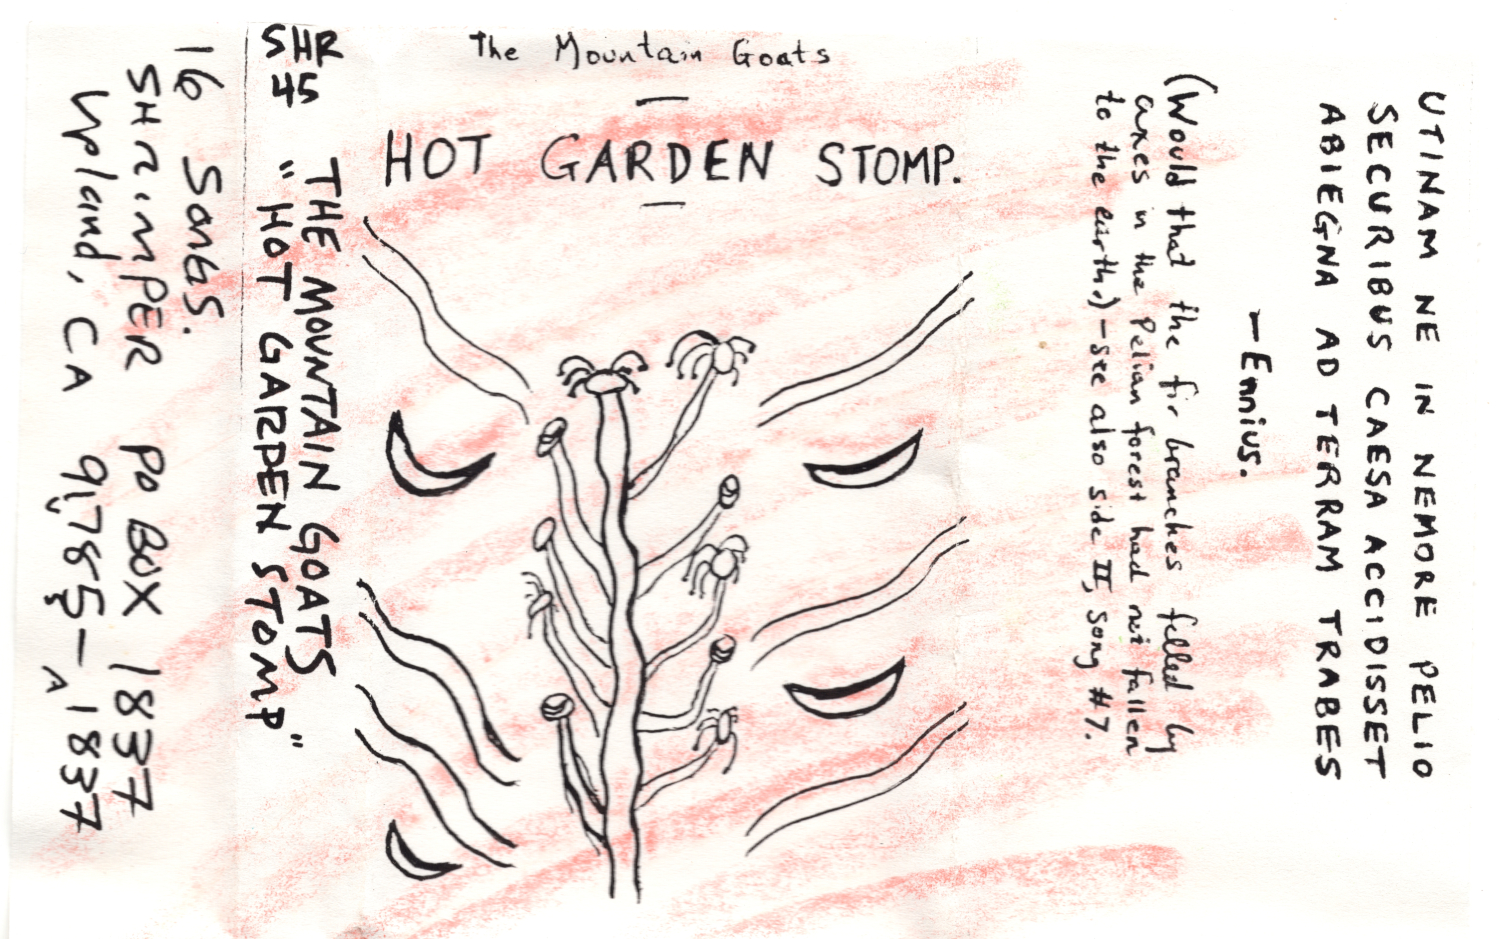 The Mountain Goats
—
HOT GARDEN STOMP.
—
SHR
45
THE MOUNTAIN GOATS
"HOT GARDEN STOMP"
16 SONGS.
SHRIMPER PO BOX 1837
Upland, CA 91785-1837
UTINAM NE IN NEMORE PELIO
SECURIBUS CAESA ACCIDISSET
ABIEGNA AD TERRAM TRABES
—Ennius.
(Would that the fir branches felled by
axes in the Pelian forest had not fallen
to the earth.)—see also side II, song #7.